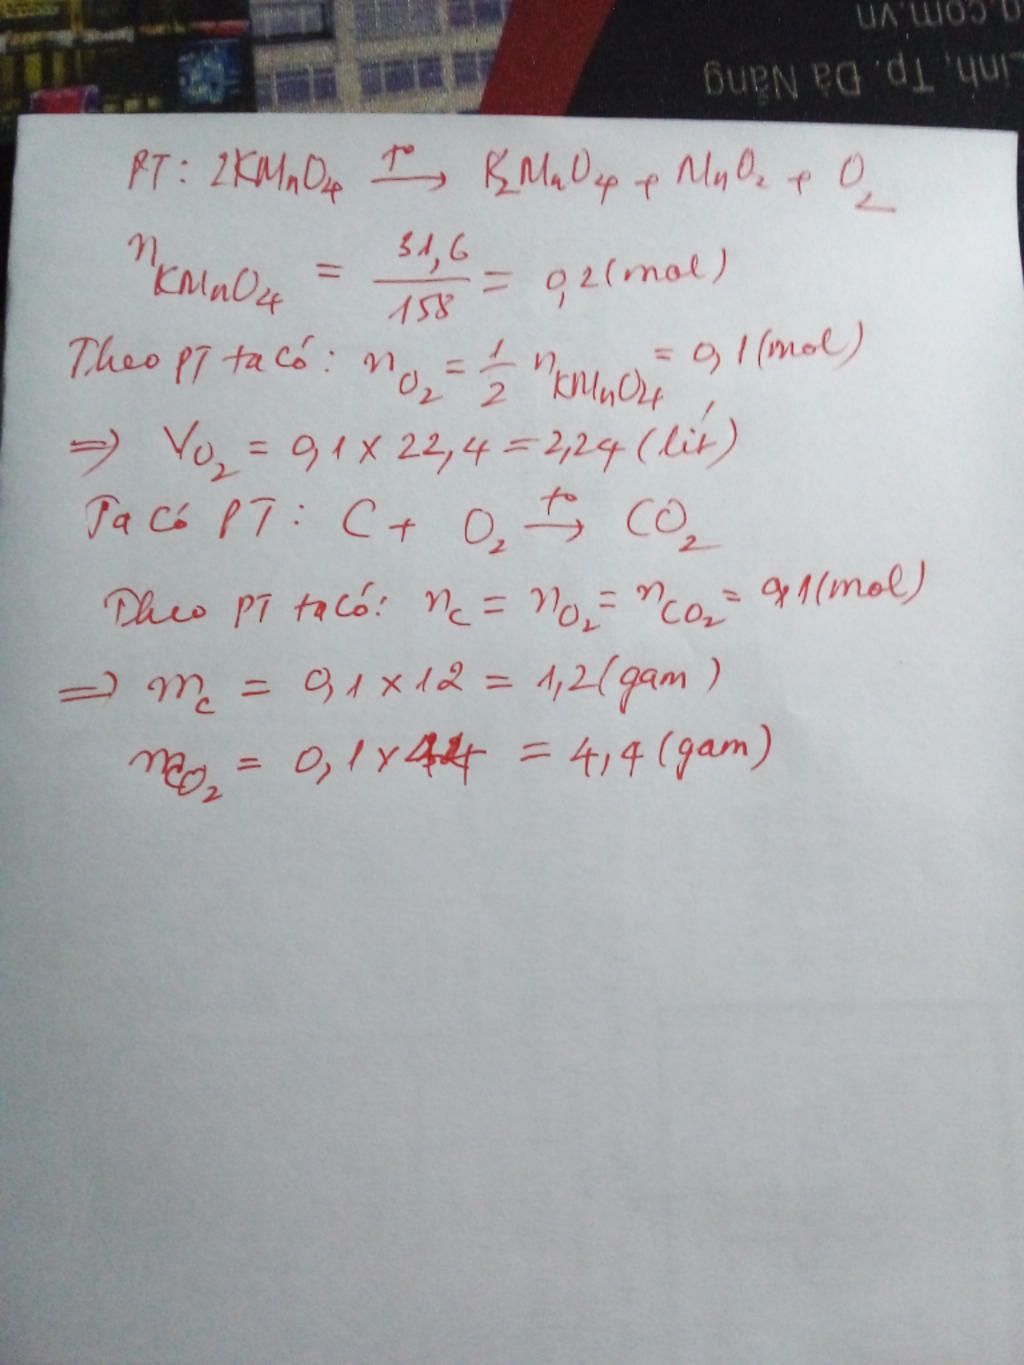 g.com.vn
Linh, Tp. Đà Nẵng
PT: 2KMnO4 t° → K2MnO4 + MnO2 + O2
nKMnO4 = 31,6/158 = 0,2 (mol)
Theo PT ta có: nO2 = 1/2 nKMnO4 = 0,1 (mol)
=> VO2 = 0,1 x 22,4 = 2,24 (lít)
Ta có PT: C + O2 t° → CO2
Theo PT ta có: nC = nO2 = nCO2 = 0,1 (mol)
=> mC = 0,1 x 12 = 1,2 (gam)
mCO2 = 0,1 x 44 = 4,4 (gam)